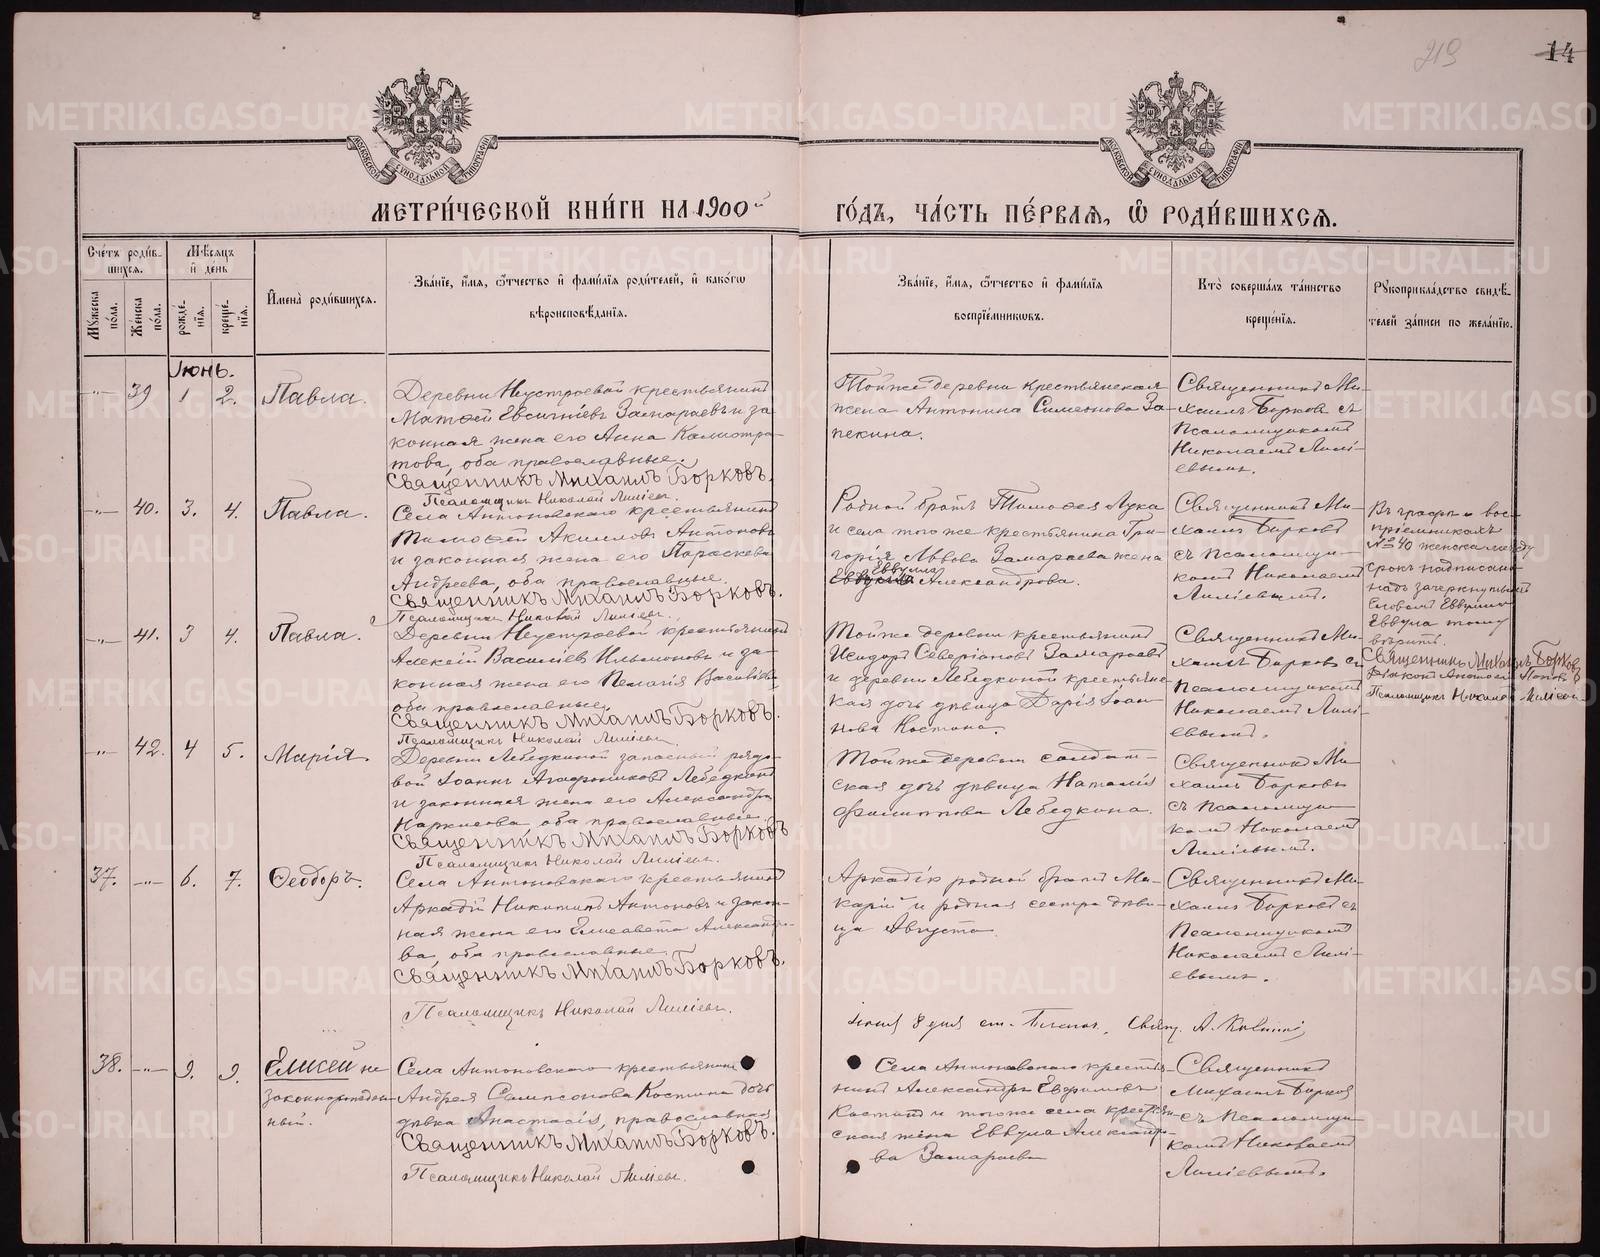 219
14
МОСКОВСКОЙ СѴНОДАЛЬНОЙ ТИПОГРАФІИ
МОСКОВСКОЙ СѴНОДАЛЬНОЙ ТИПОГРАФІИ
МЕТРИ́ЧЕСКОЙ КНИ́ГИ НА 1900й ГО́ДЪ, ЧА́СТЬ ПЕ́РВАЯ, Ѡ РОДИ́ВШИХСЯ.
Сче́тъ роди́вшихся.
Мꙋжеска по́ла.
Же́нска по́ла.
Мѣ́сяцъ и де́нь
рожде́нїя.
креще́нїя.
И҆мена̀ роди́вшихся.
Зва́нїе, и҆́мя, ѻ҆́тчество и҆ фами́лїя роди́телей, и҆ како́гѡ
вѣроисповѣ́данїя.
Зва́нїе, и҆́мя, ѻ҆́тчество и҆ фами́лїя
воспрїе́мникѡвъ.
Кто̀ соверша́лъ та́инство
креще́нїя.
Рꙋкоприкла́дство свидѣ́-
телей за́писи по жела́нїю.
Июнь.
-"- 39 1 2. Павла.
Деревни Неустроевой крестьянинъ
Матѳей Евсигніевъ Замараевъ и за
конная жена его Анна Калистра-
това, оба православные.
Священникъ Михаилъ Борковъ.
Псаломщикъ Николай Лиліевъ.
Той же деревни крестьянская
жена Антонина Симеонова За-
пекина.
Священникъ Ми-
хаилъ Борковъ съ
Псаломщикомъ
Николаемъ Лилі-
евымъ.
-"- 40. 3. 4. Павла.
Села Антоновскаго крестьянинъ
Тимоѳей Акиловъ Антоновъ
и законная жена его Параскева
Андреева, оба православные.
Священникъ Михаилъ Борковъ.
Псаломщикъ Николай Лиліевъ.
Родной братъ Тимоѳея Лука
и села того же крестьянина Гри-
горія Львова Замараева жена
Еввула
Александрова.
Священникъ Ми-
хаилъ Борковъ
съ Псаломщи-
комъ Николаемъ
Лиліевымъ.
Въ графѣ о вос-
пріемникахъ
№ 40 женска между
срокъ надписано
надъ зачеркнутымъ
словомъ
Еввула тому
вѣрить.
Священникъ Михаилъ Борковъ
Діаконъ Поповъ
Псаломщикъ Николай Лиліевъ
-"- 41. 3 4. Павла.
Деревни Неустроевой крестьянинъ
Алексій Василіевъ и за-
конная жена его Пелагія Василіева
оба православные.
Священникъ Михаилъ Борковъ.
Псаломщикъ Николай Лиліевъ.
Той же деревни крестьянинъ
Исидоръ Северіановъ Замараевъ
и деревни Лебедкиной крестьянс-
кая дочь дѣвица Дарія Іоан-
нова Костина.
Священникъ Ми-
хаилъ Борковъ съ
Псаломщикомъ
Николаемъ Лилі-
евымъ.
-"- 42. 4 5. Марія.
Деревни Лебедкиной запасный рядо-
вой Іоаннъ Агаѳониковъ Лебедкинъ
и законная жена его Александра
Наркисова, оба православные.
Священникъ Михаилъ Борковъ
Псаломщикъ Николай Лиліевъ.
Той же деревни солдат-
ская дочь дѣвица Наталія
Филиппова Лебедкина.
Священникъ Ми-
хаилъ Борковъ
съ Псаломщи-
комъ Николаемъ
Лиліевымъ.
37. -"- 6. 7. Ѳеодоръ.
Села Антоновскаго крестьянинъ
Аркадій Никитинъ Антоновъ и закон-
ная жена его Елисавета Александро-
ва, оба православные.
Священникъ Михаилъ Борковъ.
Псаломщикъ Николай Лиліевъ.
Аркадія родной братъ Ма-
карій и родная сестра дѣви-
ца Августа.
Священникъ Ми-
хаилъ Борковъ съ
Псаломщикомъ
Николаемъ Лилі-
евымъ.
8 дня
38. -"- 9. 9. Елисей не
законнорожден-
ный.
Села Антоновскаго крестьянина
Андрея Сампсонова Костина дочь
дѣвка Анастасія, православная
Священникъ Михаилъ Борковъ.
Псаломщикъ Николай Лиліевъ.
Села Антоновскаго крестья-
нинъ Александръ Евѳимовъ
Костинъ и того же села крестьян-
ская жена Еввула Александро-
ва Замараева
Священникъ
Михаилъ Борковъ
съ Псаломщи-
комъ Николаемъ
Лиліевымъ.